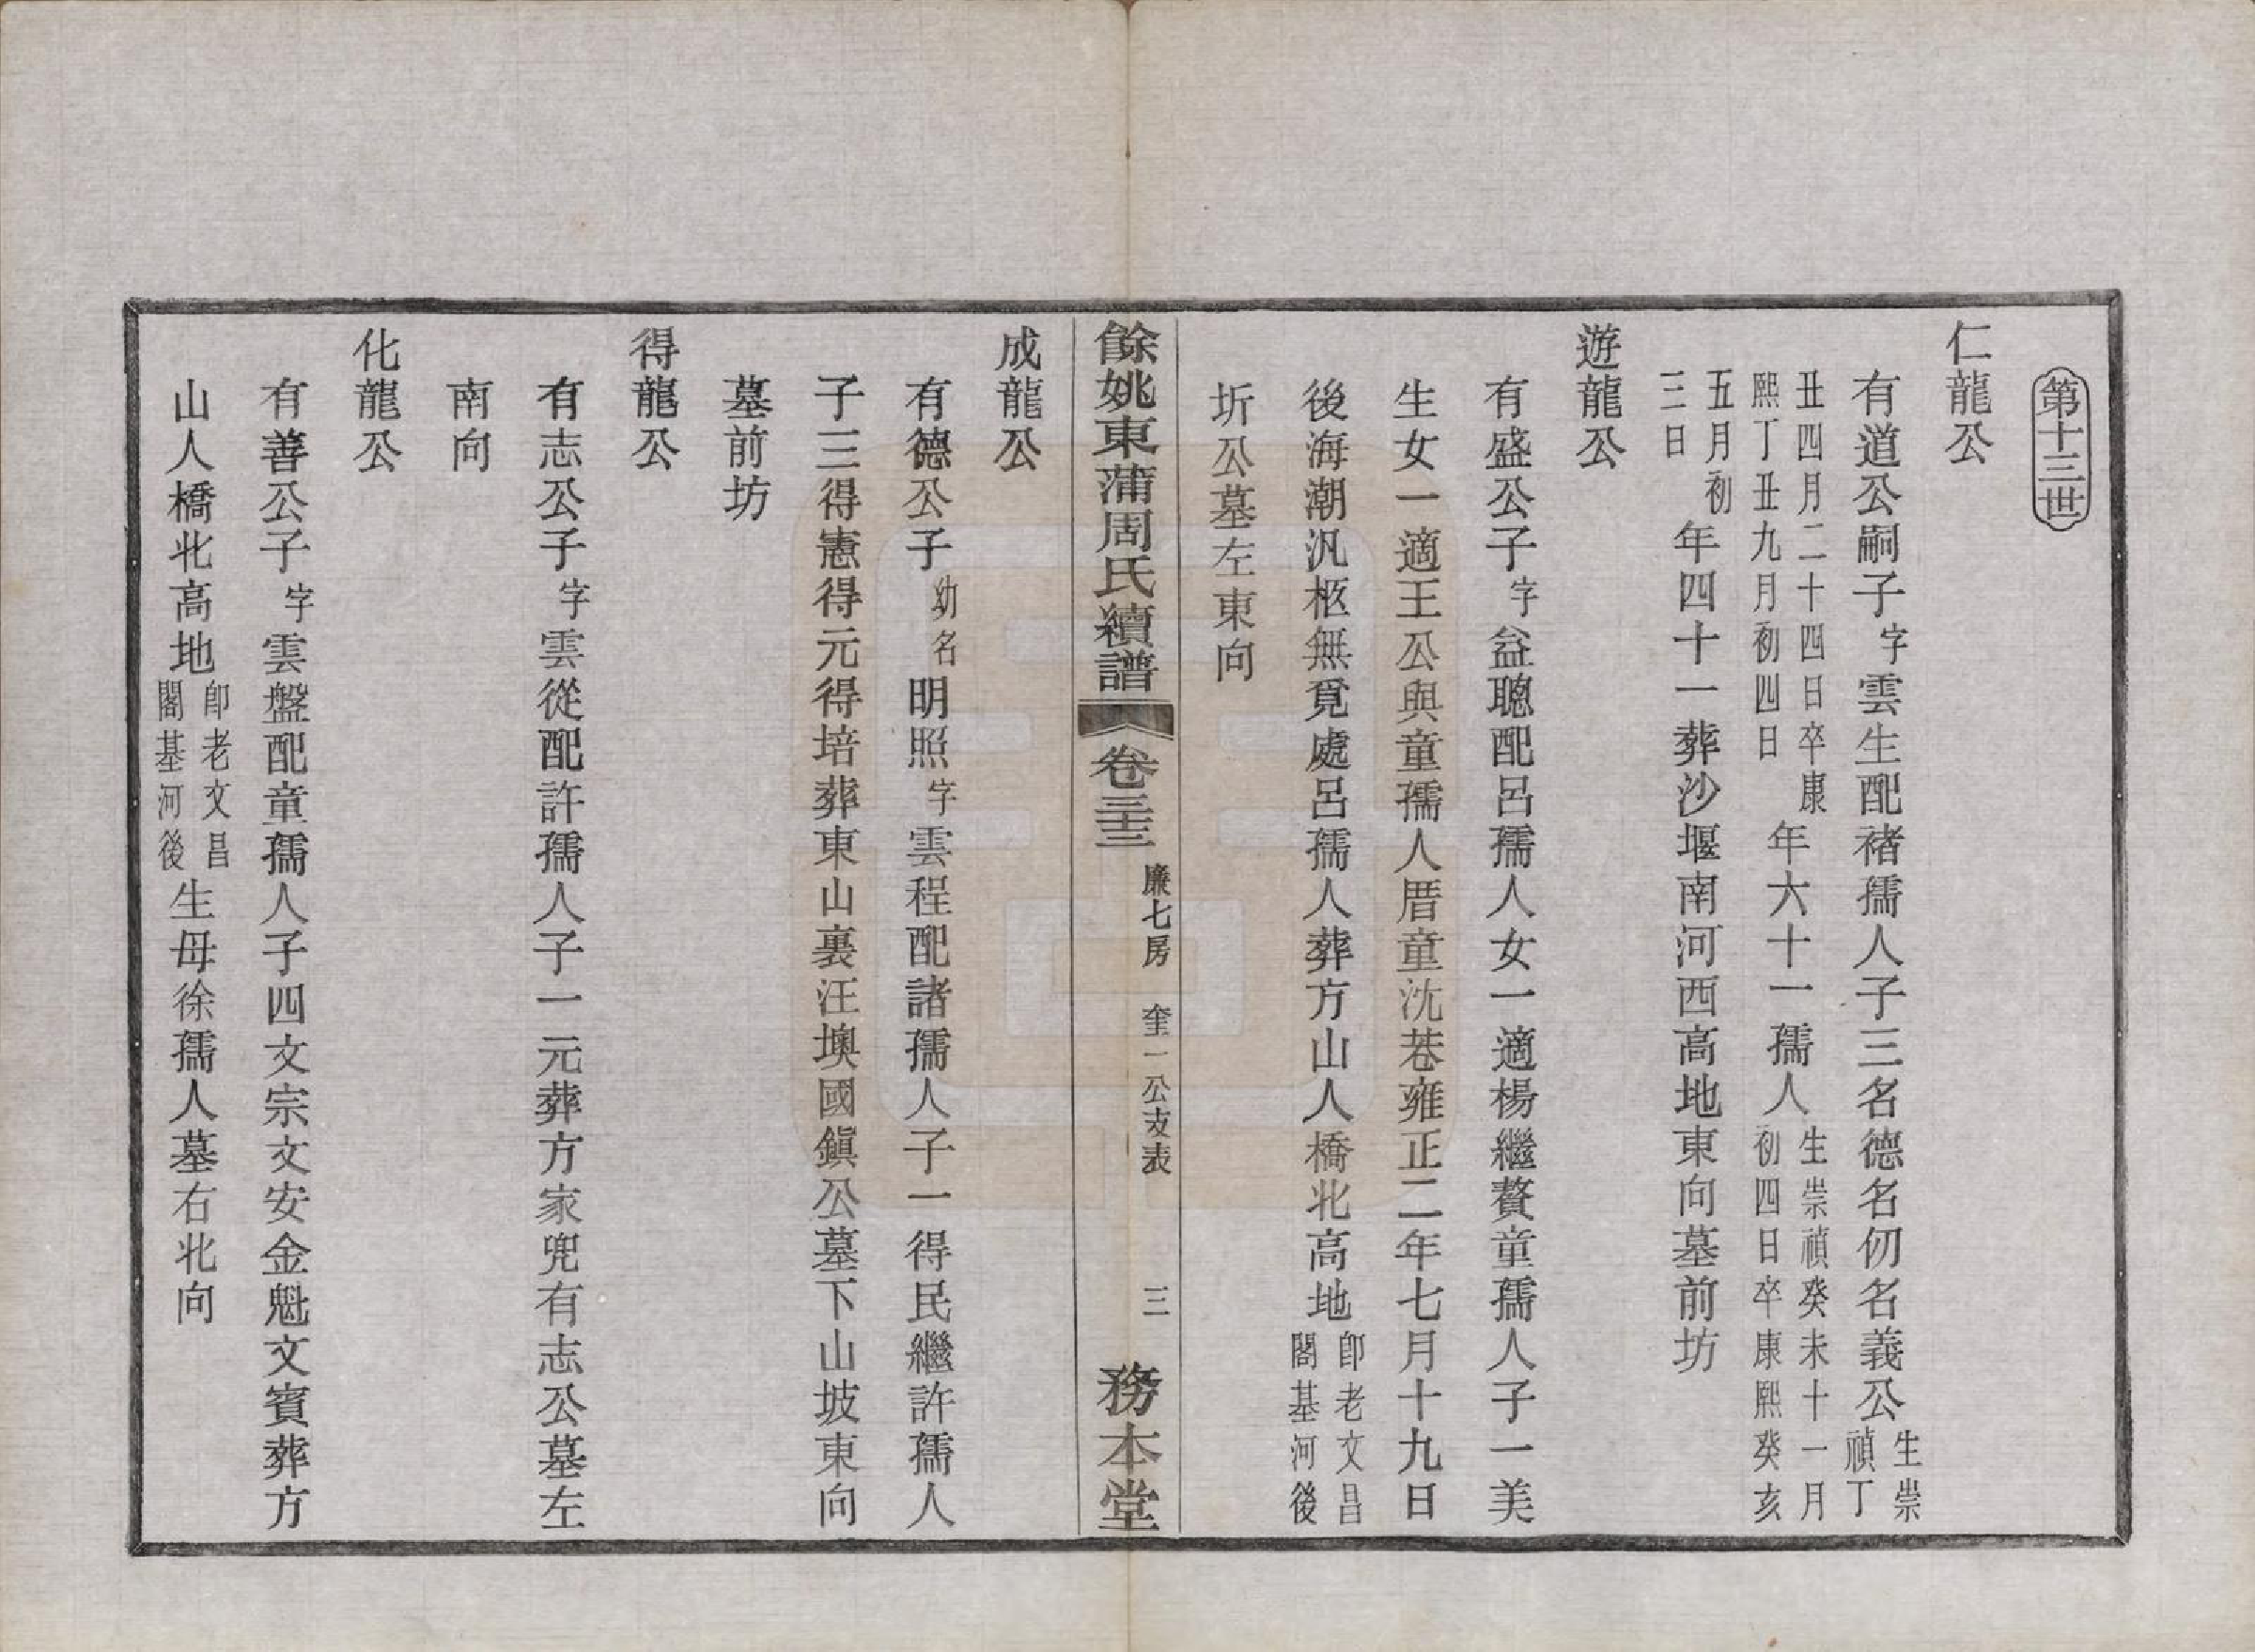 第十三世
仁龍公
有道公嗣子字雲生配褚孺人子三名德名仞名義公生崇禎丁
丑四月二十四日卒康熙丁丑九月初四日年六十一孺人生崇禎癸未十一月初四日卒康熙癸亥
五月初三日年四十一葬沙堰南河西高地東向墓前坊
遊龍公
有盛公子字益聰配呂孺人女一適楊繼贅童孺人子一美
生女一適王公與童孺人厝童沈巷雍正二年七月十九日
後海潮汎柩無覓處呂孺人葬方山人橋北高地卽老文昌閣基河後
圻公墓左東向
餘姚東蒲周氏續譜 卷三十三 廉七房 奎一公支表 三 務本堂
成龍公
有德公子幼名明照字雲程配諸孺人子一得民繼許孺人
子三得憲得元得培葬東山裏汪墺國鎭公墓下山坡東向
墓前坊
得龍公
有志公子字雲從配許孺人子一元葬方家兜有志公墓左
南向
化龍公
有善公子字雲盤配童孺人子四文宗文安金魁文賓葬方
山人橋北高地卽老文昌閣基河後生母徐孺人墓右北向